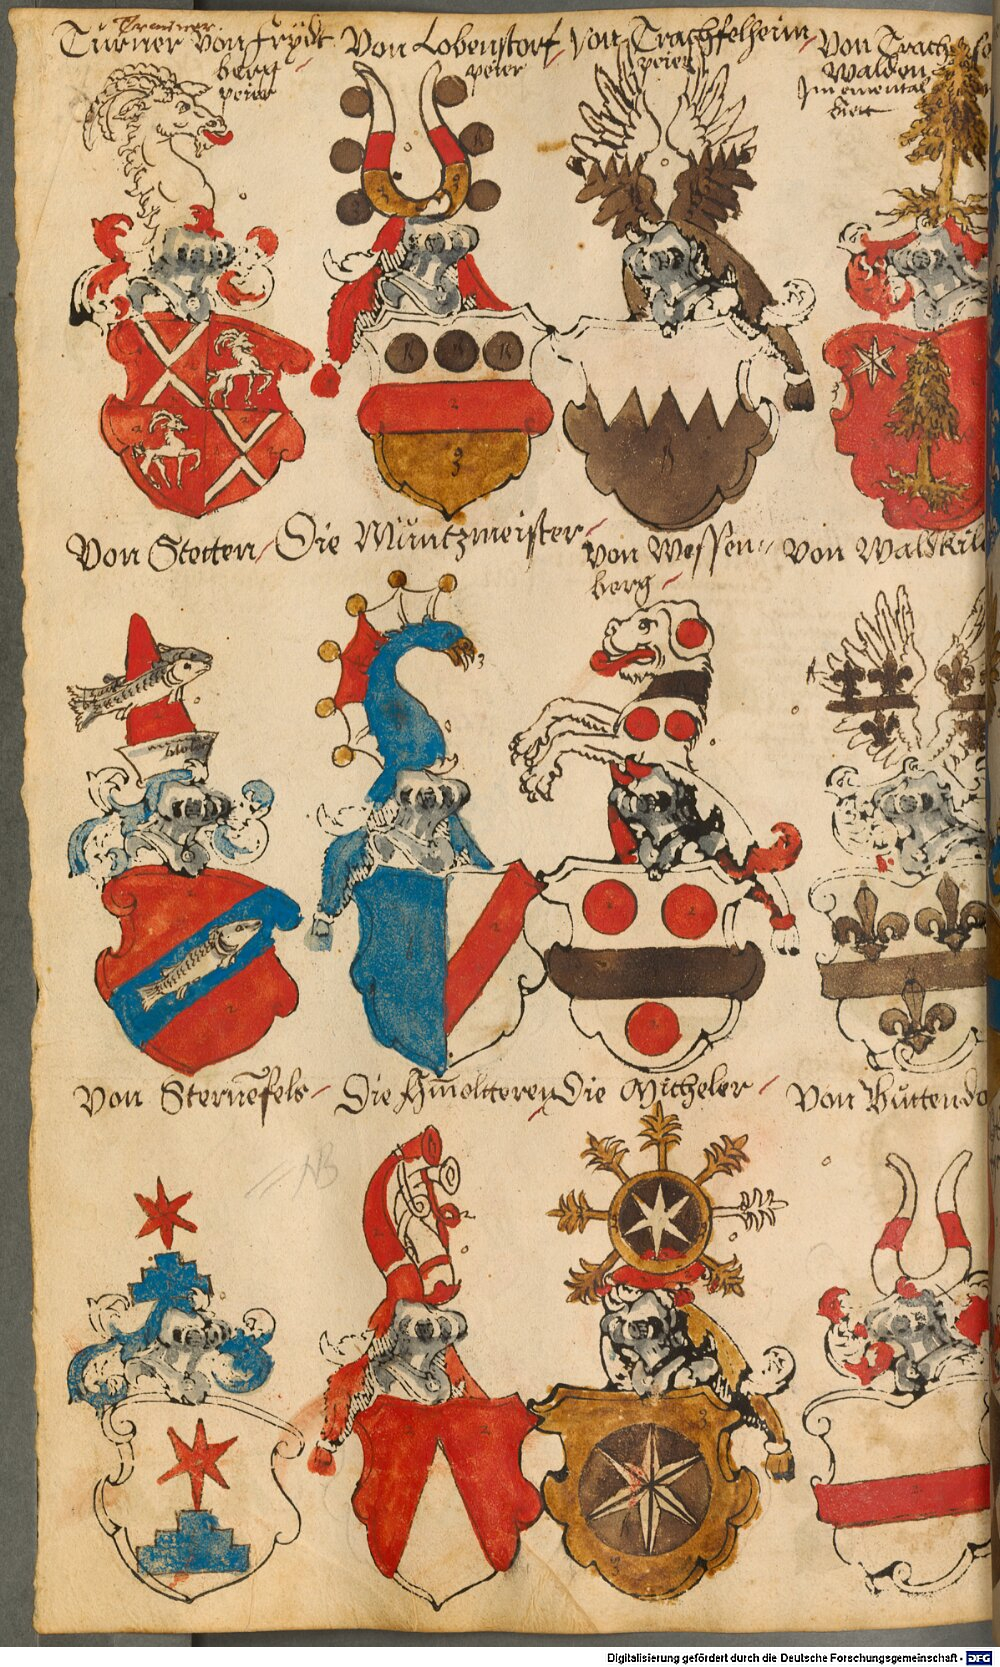 Trauner
Türner von Frydt
berg
peier
Von Lobenstorf
peier
Von Trachfelheim
peier
Von Trach
Walden
Im emental
hiett
Von Stetten
Die Müntzmeister
Von Wessen
berg
Von Waldkil
Von Sternēfels
Die Am̄oltteren
Die Micheler
Von Buttendo
NB
Digitalisierung gefördert durch die Deutsche Forschungsgemeinschaft - DFG